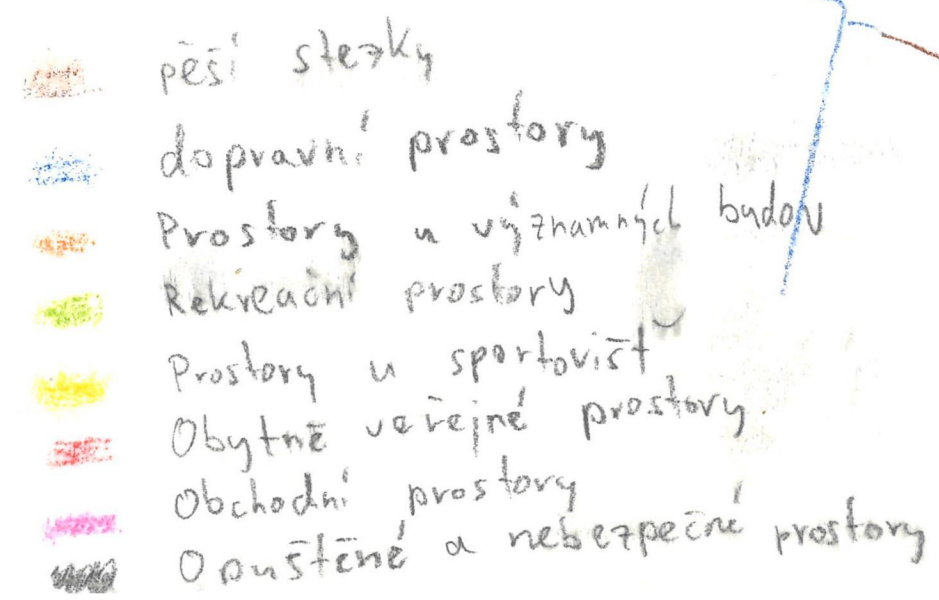 pěší stezky
dopravní prostory
Prostory u významných budov
Rekreační prostory
Prostory u sportovišť
Obytné veřejné prostory
Obchodní prostory
Opuštěné a nebezpečné prostory